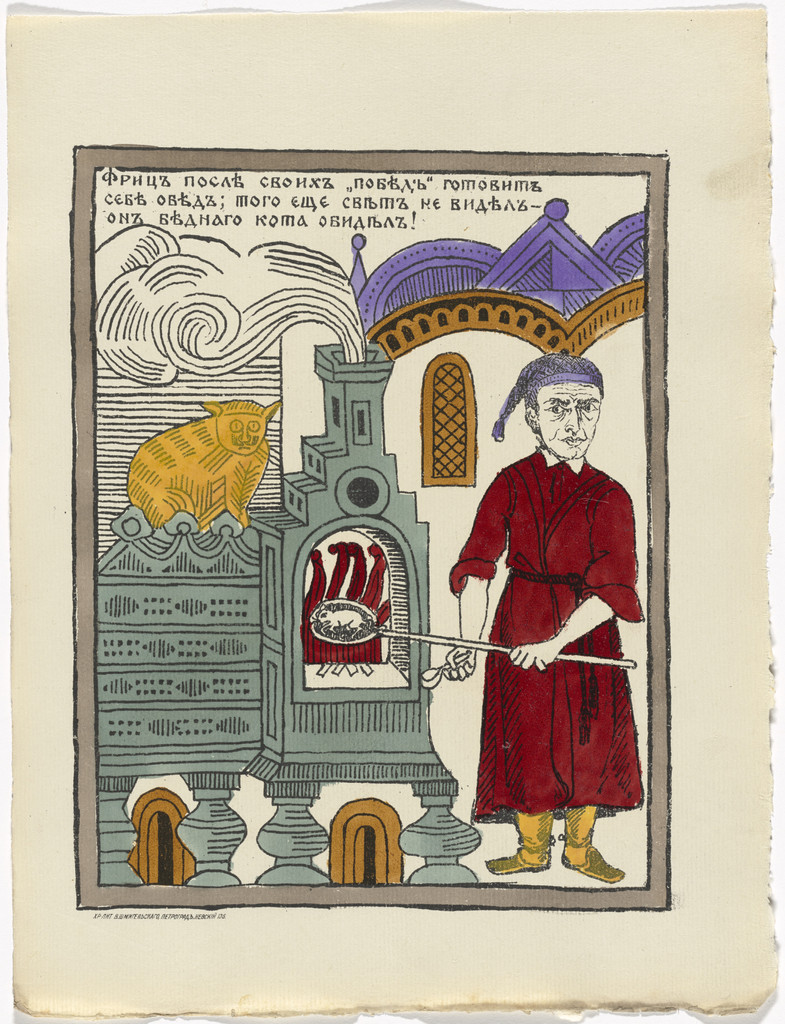 Фрицъ послѣ своихъ „побѣдъ“ готовитъ
себѣ обѣдъ; того еще свѣтъ не видѣлъ—
онъ бѣднаго кота обидѣлъ!
ХР-ЛИТ. В.ШМИГЕЛЬСКАГО, ПЕТРОГРАДЪ, НЕВСКІЙ 126.